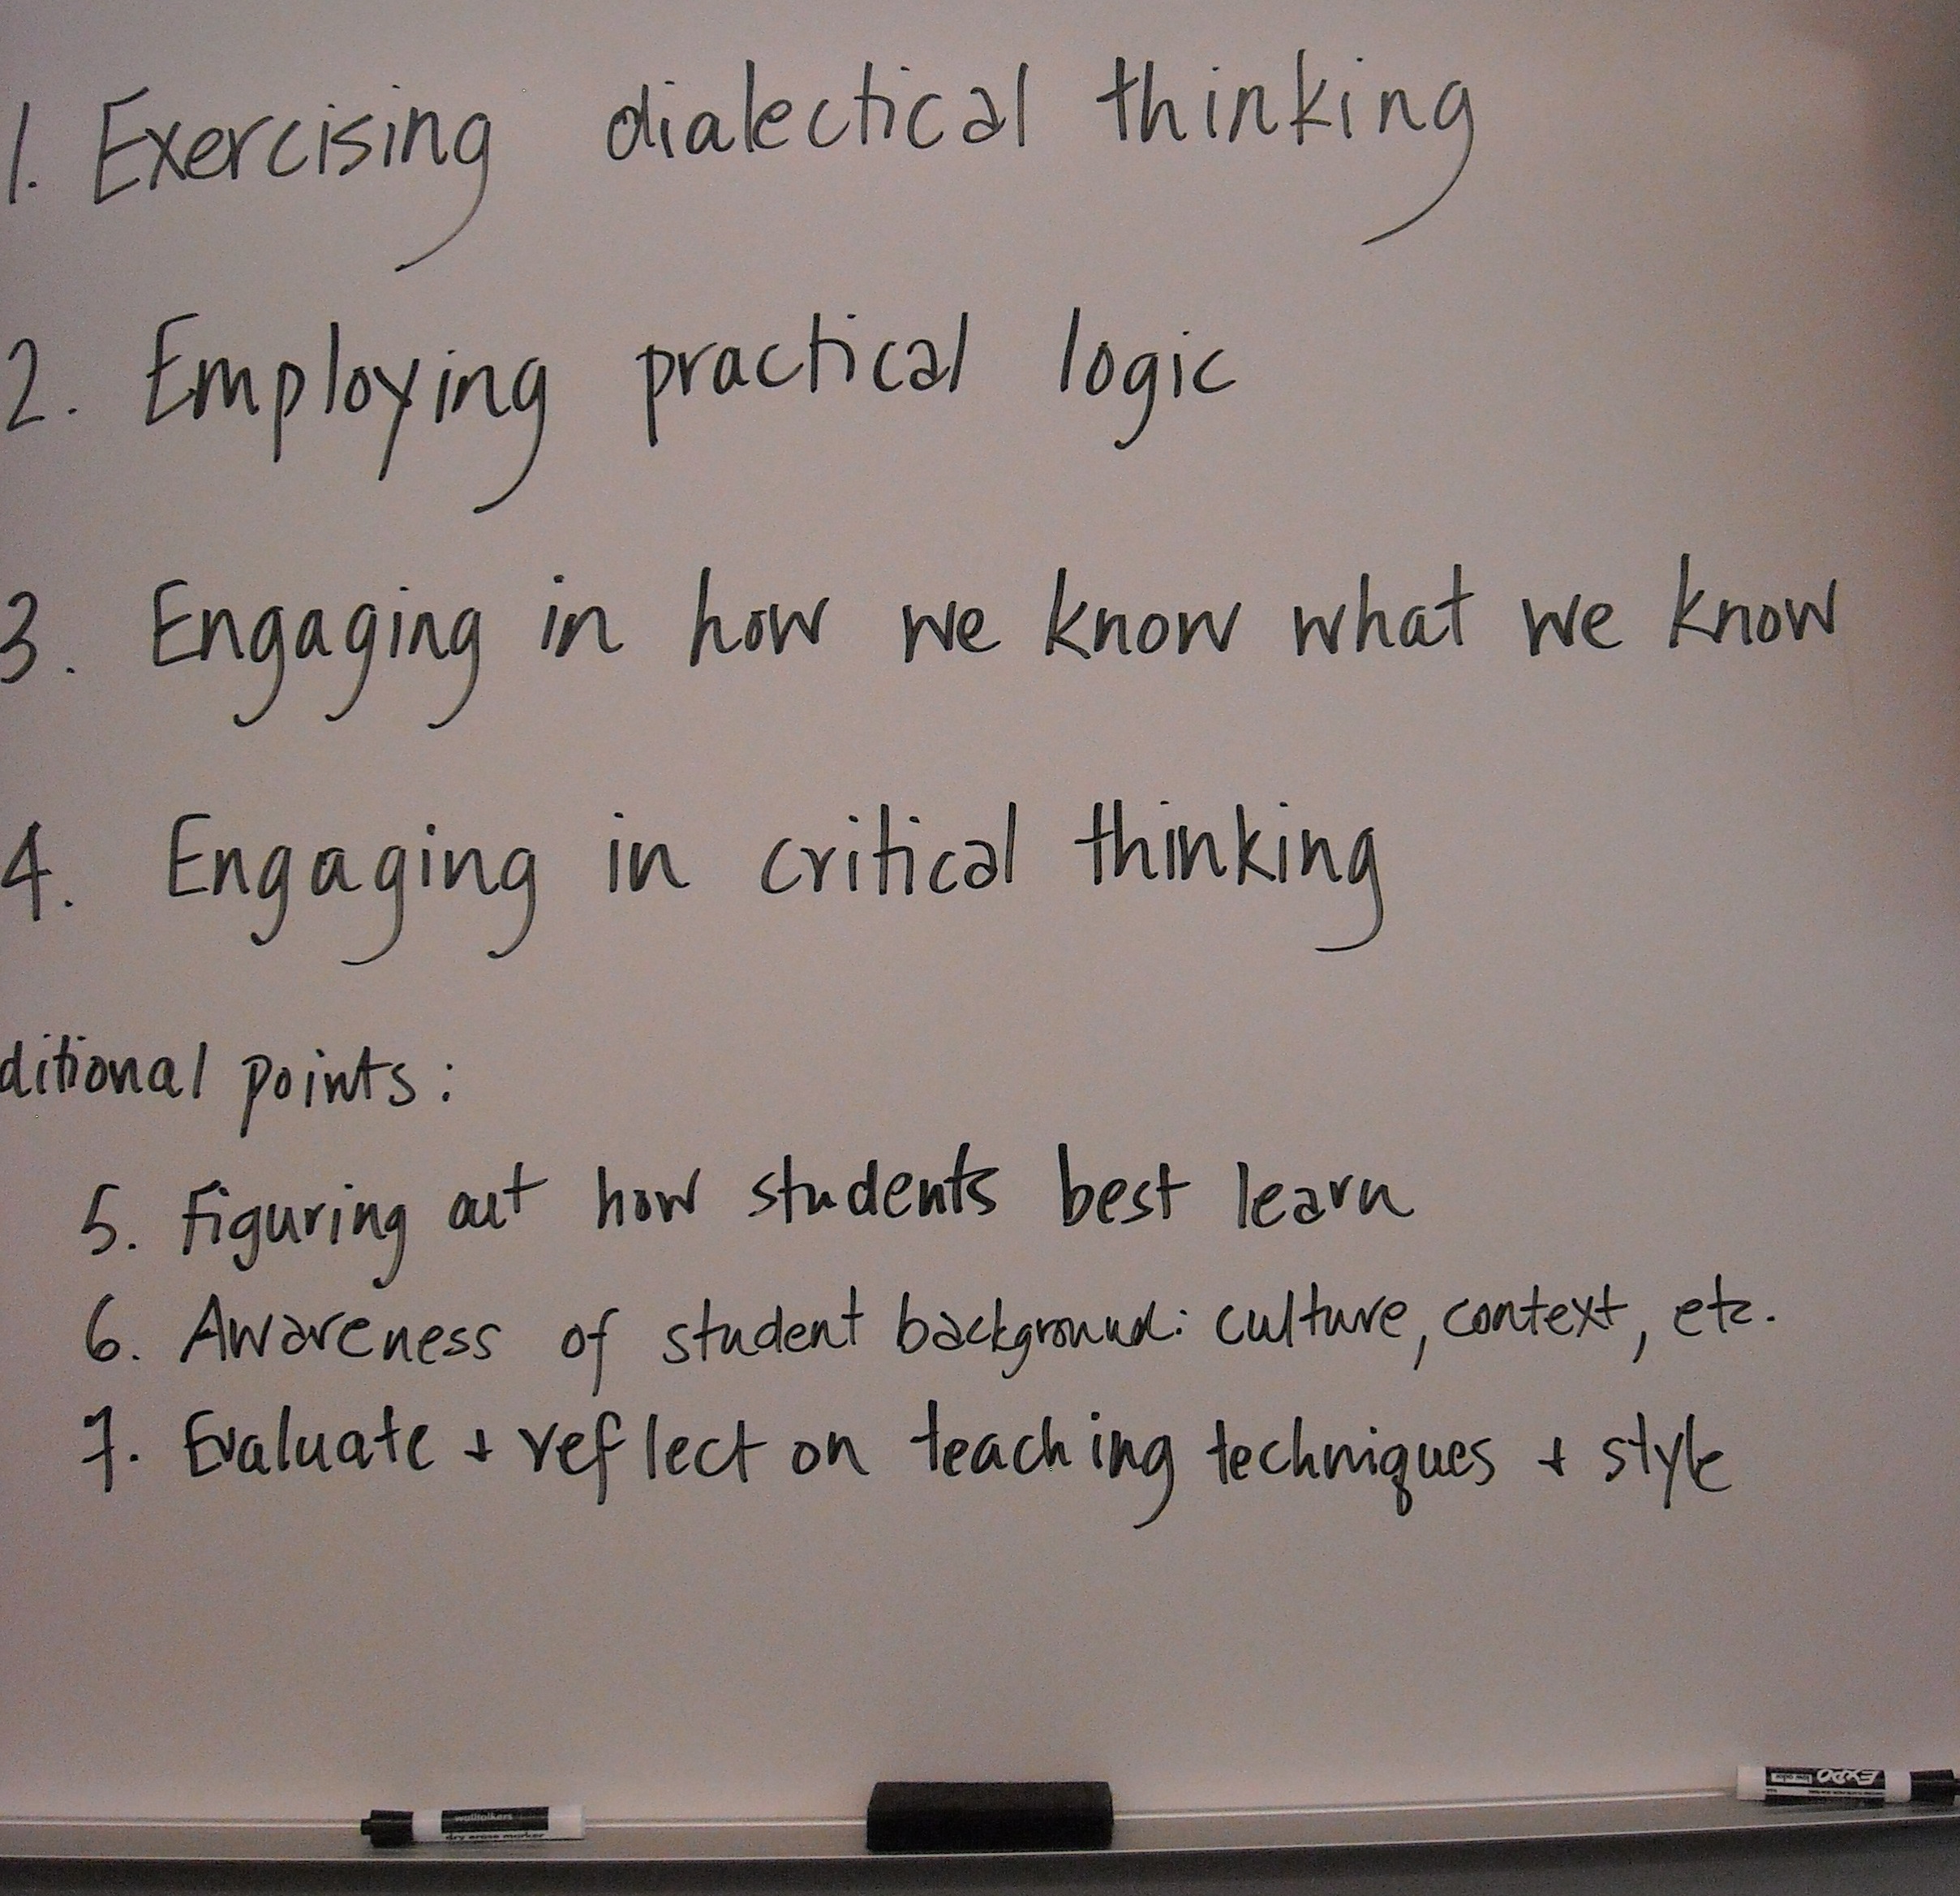 1. Exercising dialectical thinking
2. Employing practical logic
3. Engaging in how we know what we know
4. Engaging in critical thinking
ditional points:
5. Figuring out how students best learn
6. Awareness of student background: culture, context, etc.
7. Evaluate + reflect on teaching techniques + style
walltalkers
dry erase marker
EXPO
low odor